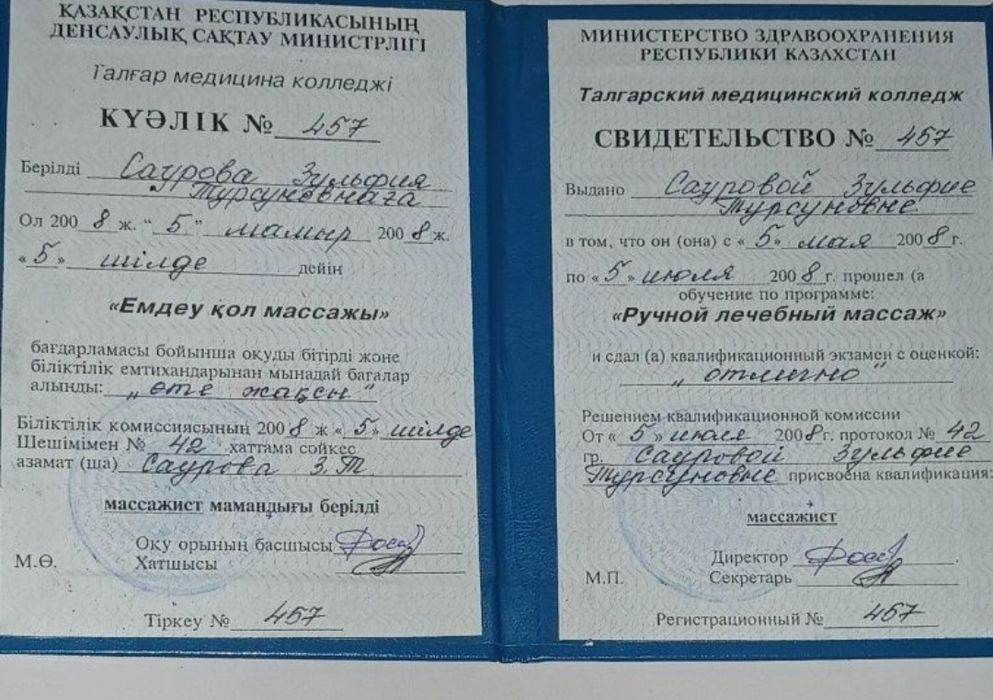 ҚАЗАҚСТАН РЕСПУБЛИКАСЫНЫҢ
ДЕНСАУЛЫҚ САҚТАУ МИНИСТРЛІГІ
Талғар медицина колледжі
КУӘЛІК № 457
Берілді Саурова Зульфия
Турсуновнаға
Ол 2008 ж. "5" мамыр 2008 ж.
«5» шілде дейін
«Емдеу қол массажы»
бағдарламасы бойынша оқуды бітірді және
біліктілік емтихандарынан мынадай бағалар
алынды: „өте жақсы"
Біліктілік комиссиясының 2008 ж «5» шілде
Шешімімен № 42 хаттама сәйкес
азамат (ша) Саурова З.Т
массажист мамандығы берілді
Оқу орынның басшысы
Хатшысы
М.Ө.
Тіркеу № 457
МИНИСТЕРСТВО ЗДРАВООХРАНЕНИЯ
РЕСПУБЛИКИ КАЗАХСТАН
Талгарский медицинский колледж
СВИДЕТЕЛЬСТВО № 457
Выдано Сауровой Зульфие
Турсуновне
в том, что он (она) с «5» мая 2008 г.
по «5» июля 2008 г. прошел (а
обучение по программе:
«Ручной лечебный массаж»
и сдал (а) квалификационный экзамен с оценкой:
„отлично"
Решением квалификационной комиссии
От «5» июля 2008 г. протокол № 42
гр. Сауровой Зульфие
Турсуновне присвоена квалификация:
массажист
Директор
М.П. Секретарь
Регистрационный № 457